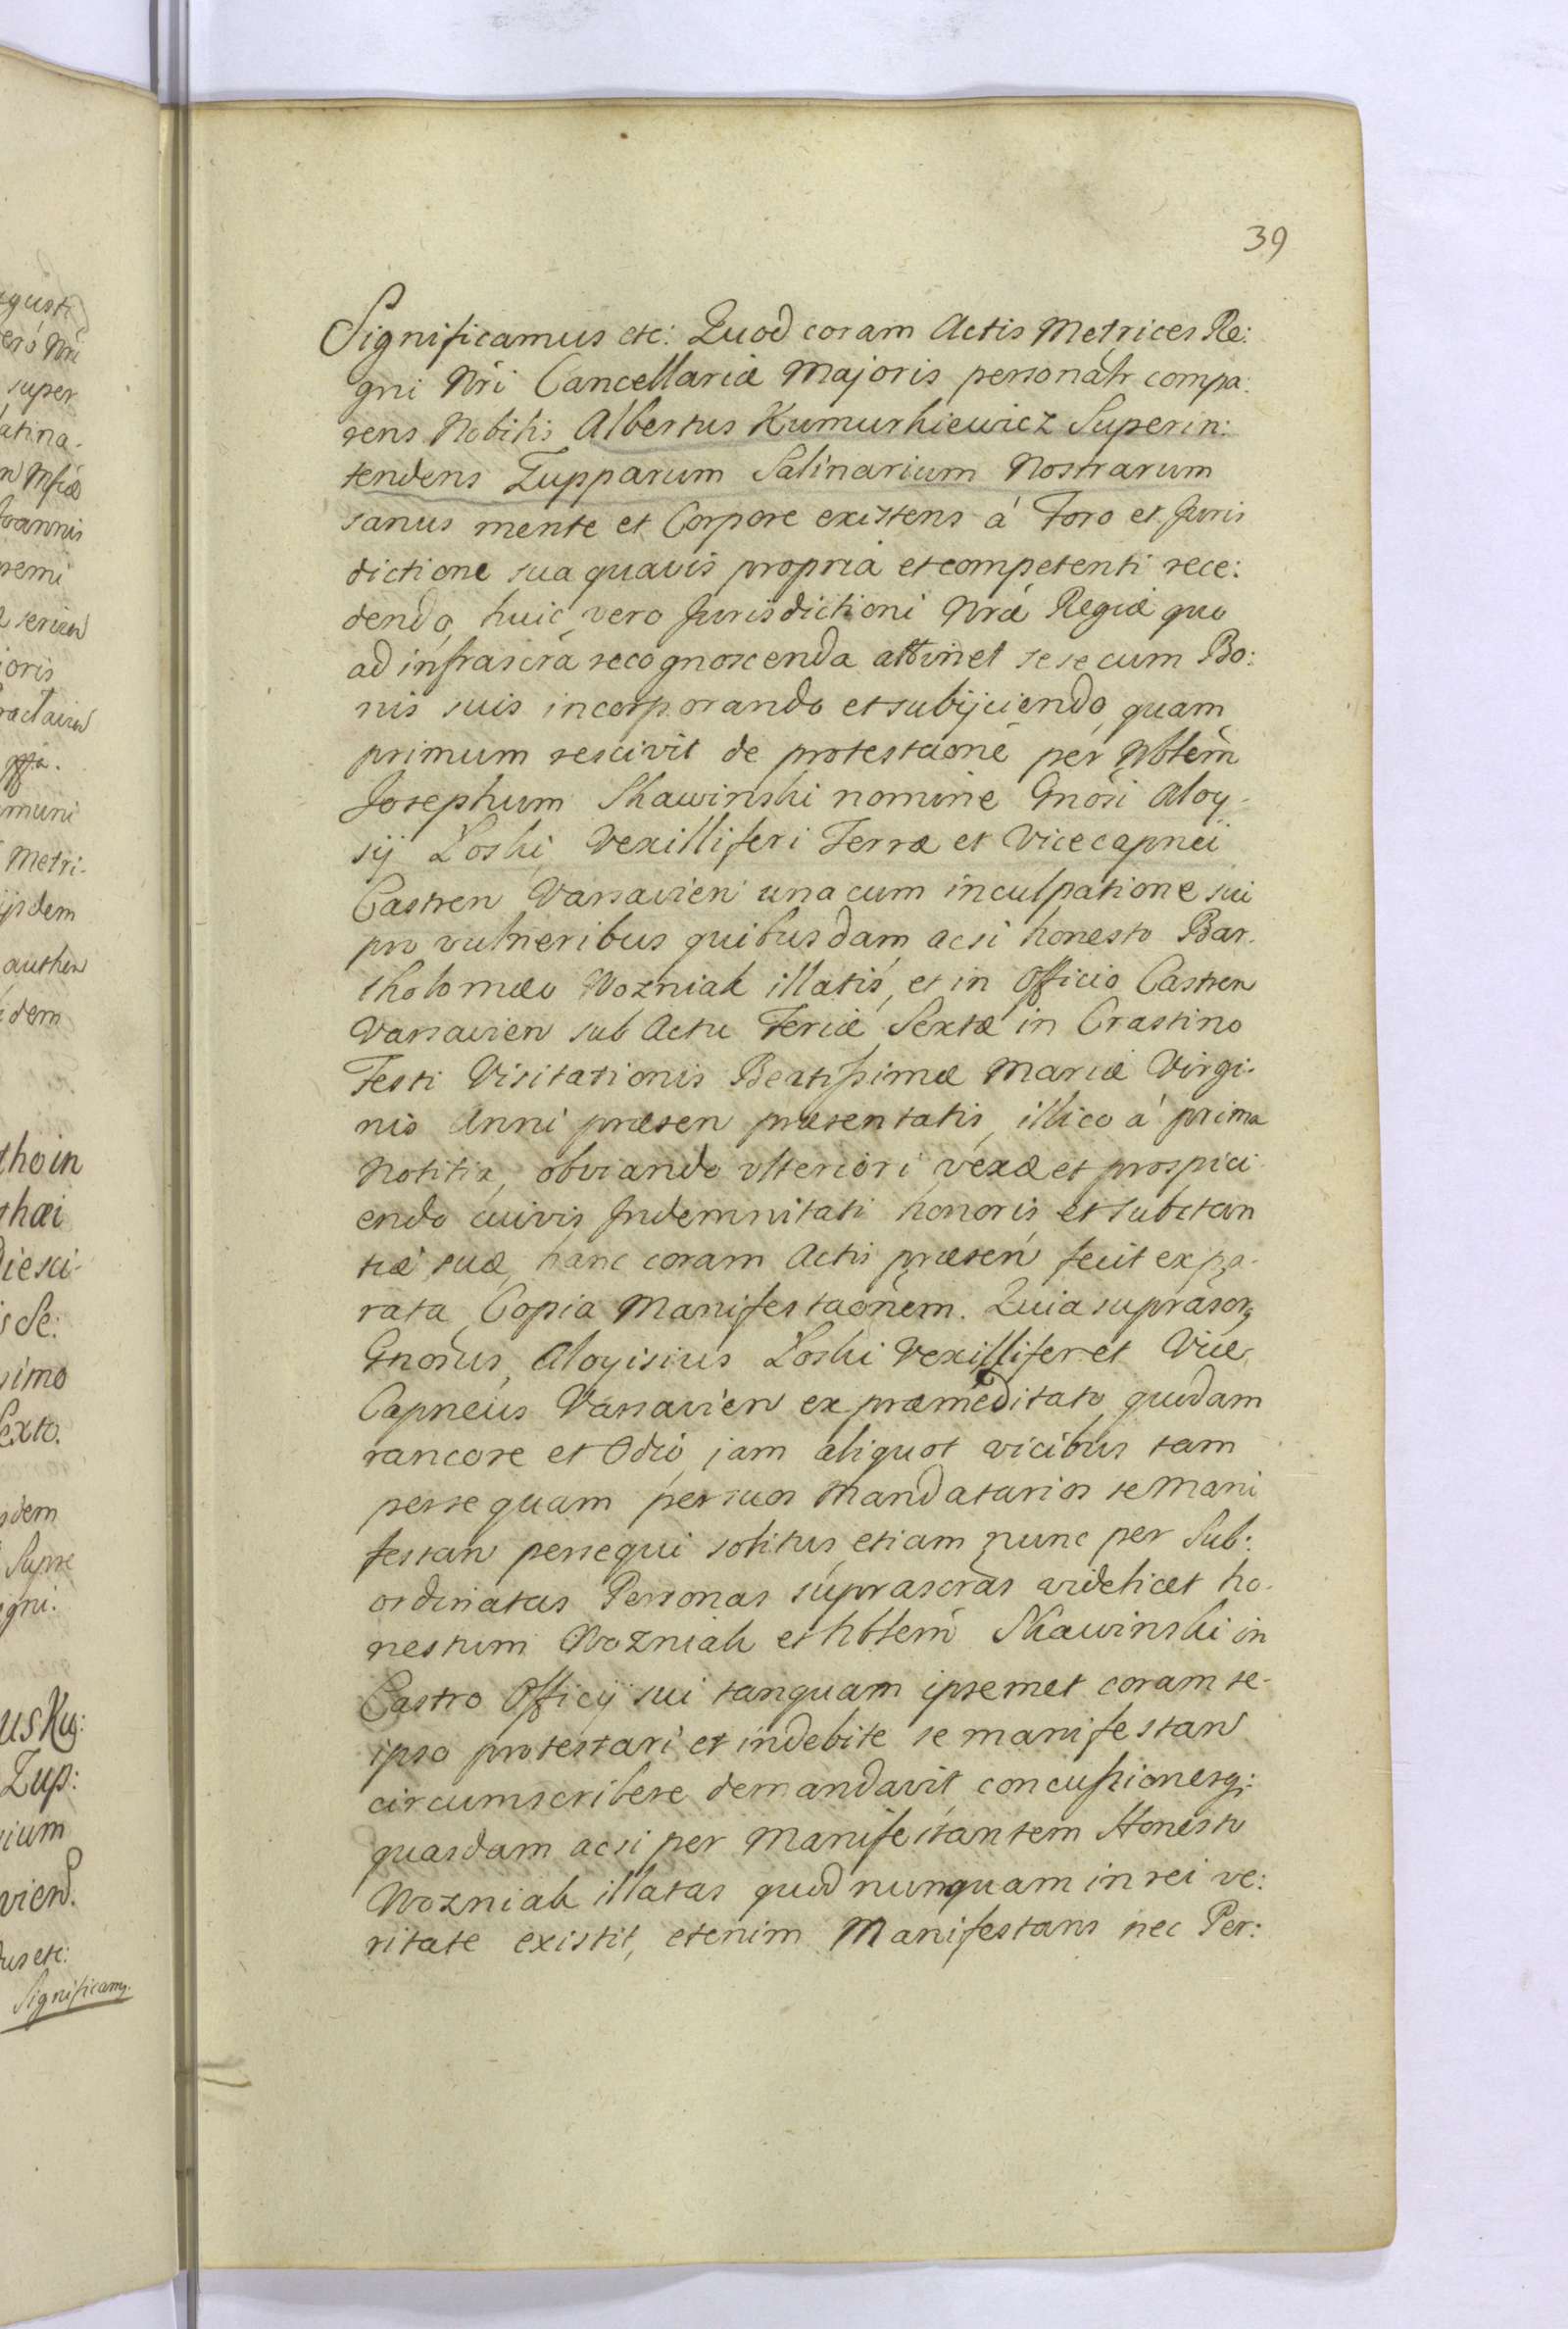 39
Significamus etc: Quod coram Actis Metrices Re:
gni Nri Cancellariæ Majoris personalr compa:
rens Nobilis Albertus Kumurkiewicz Superin:
tendens Zupparum Salinarium Nostrarum
sanus mente et Corpore existens á Foro et Juris
dictione sua quavis propria et competenti rece:
dendo, huic vero Jurisdictioni Nræ Regiæ quo
ad infrascra recognoscenda attinet sese cum Bo:
nis suis incorporando et subijciendo, quam
primum rescivit de protestaone per Nbtem
Josephum Skawinski nomine Gnosi Aloy-
sij Loski Vexilliferi Terræ et Vicecapnei
Castren Varsavien una cum inculpatione sui
pro vulneribus quibusdam acsi honesto Bar-
tholomæo Wozniak illatis, et in Officio Castren
Varsavien sub Actu Feriæ Sextæ in Crastino
Festi Visitationis Beatissimæ Mariæ Virgi:
nis Anni præsen præsentatis, illico á prima
Notitia, obviando ulteriori vexæ et prospici
endo cuivis Indemnitati honoris et substan
tiæ suæ, hanc coram Actis præsen fecit ex pa-
rata Copia Manifestaonem. Quia suprascr
Gnosus Aloyisius Loski Vexillifer et Vice
Capneus Varsavien ex præmeditato quodam
rancore et Odio, jam aliquot vicibus tam
perse quam per suos Mandatarios se Mani
festan persequi solitus, etiam nunc per Sub:
ordinatas Personas suprascras videlicet ho-
nestum Wozniak et Nbtem Skawinski in
Castro Officij sui tanquam ipsemet coram se-
ipso protestari et indebite se manifestan
circumscribere demandavit concussionesq:
quasdam acsi per Manifestantem Honesto
Wozniak illatas quod nunquam in rei ve:
ritate existit, etenim Manifestans nec Per: